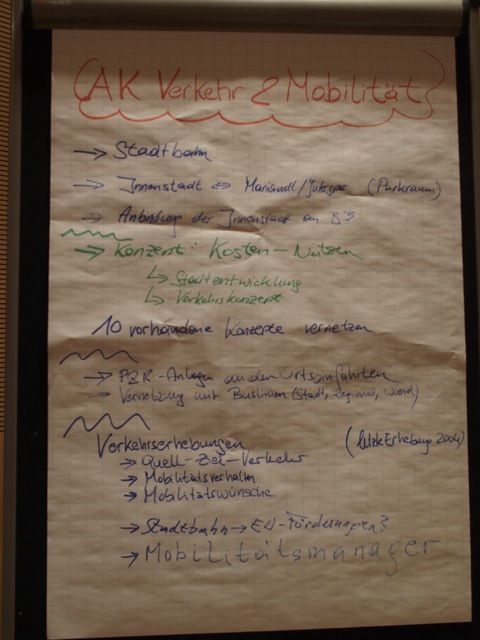 AK Verkehr & Mobilität
→ Stadtbahn
→ Innenstadt ⇔ (Parkraum)
→ Anbindung der Innenstadt an S3
→ Konzept: Kosten-Nutzen
↳ Stadtentwicklung
↳ Verkehrskonzept
10 vorhandene Konzepte vernetzen
→ P&R-Anlagen an den Ortseinfahrten
→ Vernetzung mit Buslinien (Stadt, Regional,
Verkehrserhebungen (letzte Erhebung 2004)
→ Quell-Ziel-Verkehr
→ Mobilitätsverhalten
→ Mobilitätswünsche
→ Stadtbahn → EU-Förderungen?
→ Mobilitätsmanager